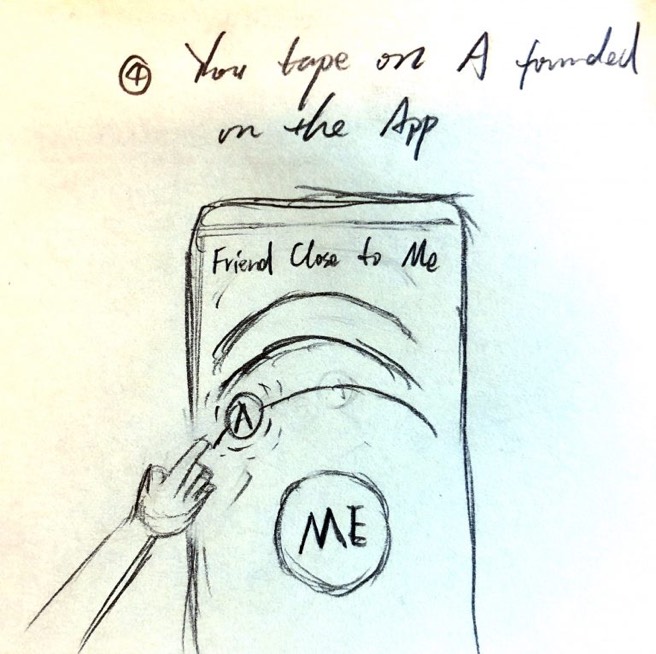 ④ You tape on A founded
on the App
Friend Close to Me
A
ME